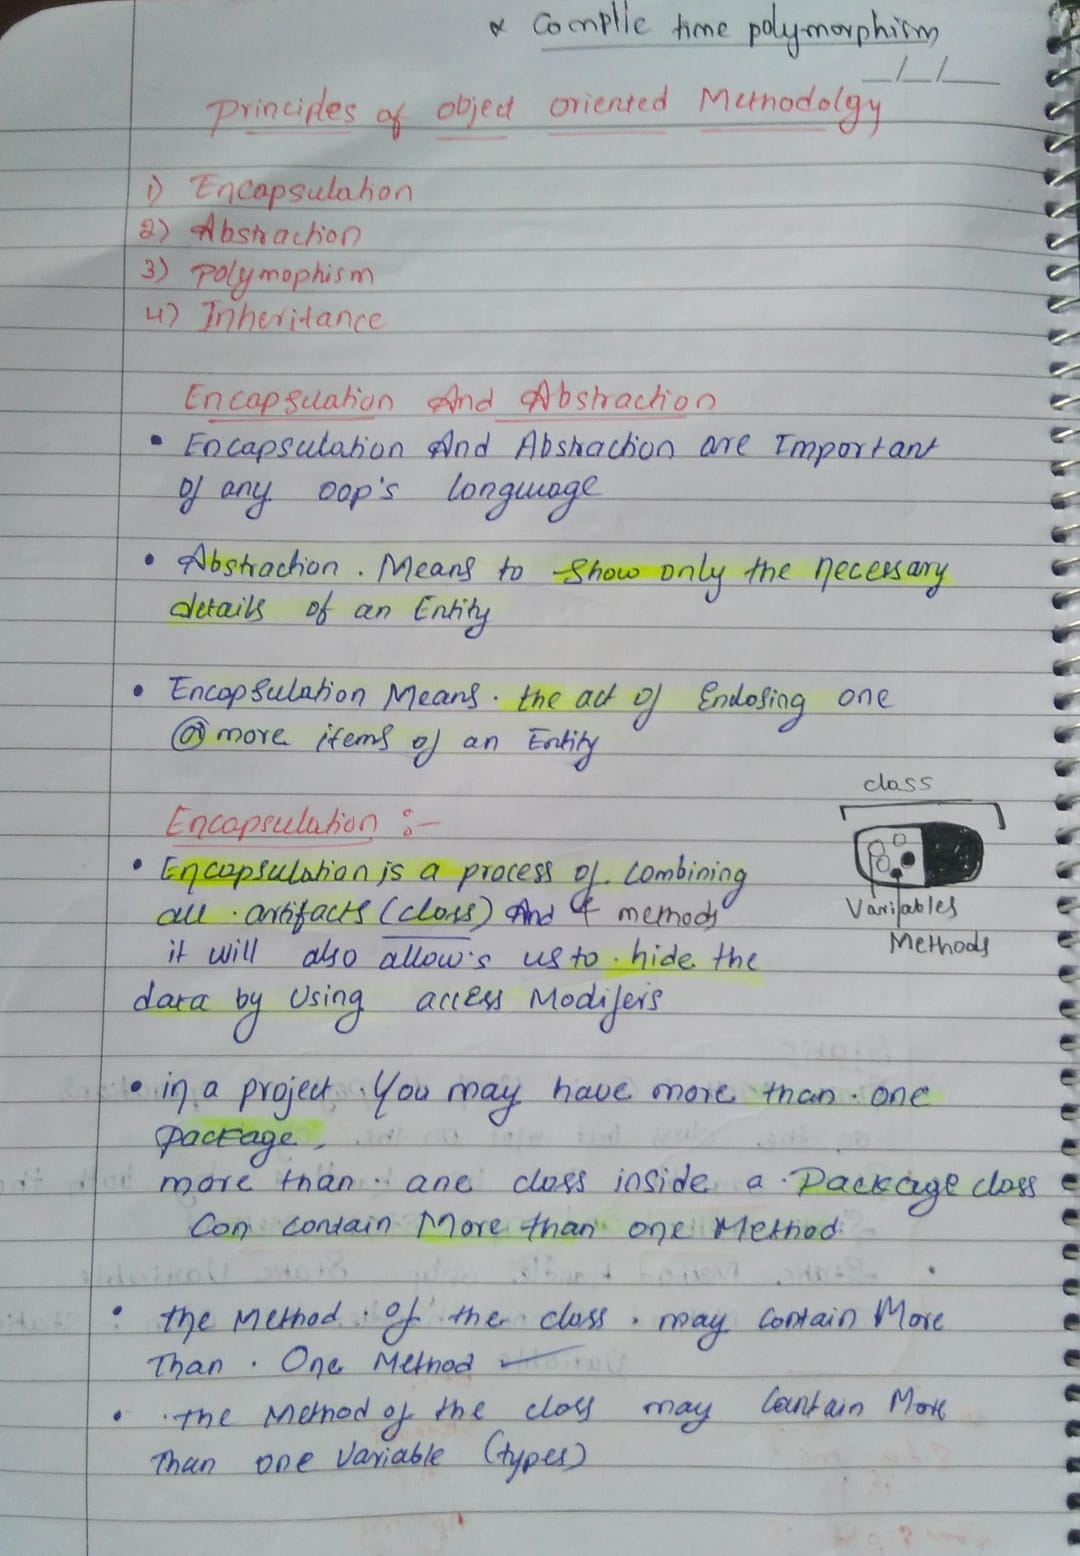 * Complie time polymorphism
__/__/__
Principles of object oriented Methodolgy
1) Encapsulation
2) Abstraction
3) polymophism
4) Inheritance
Encapsulation And Abstraction
• Encapsulation And Abstraction are Important
of any oop's language
• Abstraction. Means to show only the necessary
details of an Entity
• Encapsulation Means. the act of Enclosing one
or more items of an Entity
class
Encapsulation :-
• Encapsulation is a process of. combining
all. artifacts (class) And & methods
Variables
it will also allow's us to. hide the
Methods
data by Using access Modifiers
• in a project. You may have more than. one
package,
more than. one class inside a. Package class
Can contain More than one Method.
• the Method. of the class. may contain More
Than. One Method
• .the Method of the class may Contain More
Than one Variable (types)